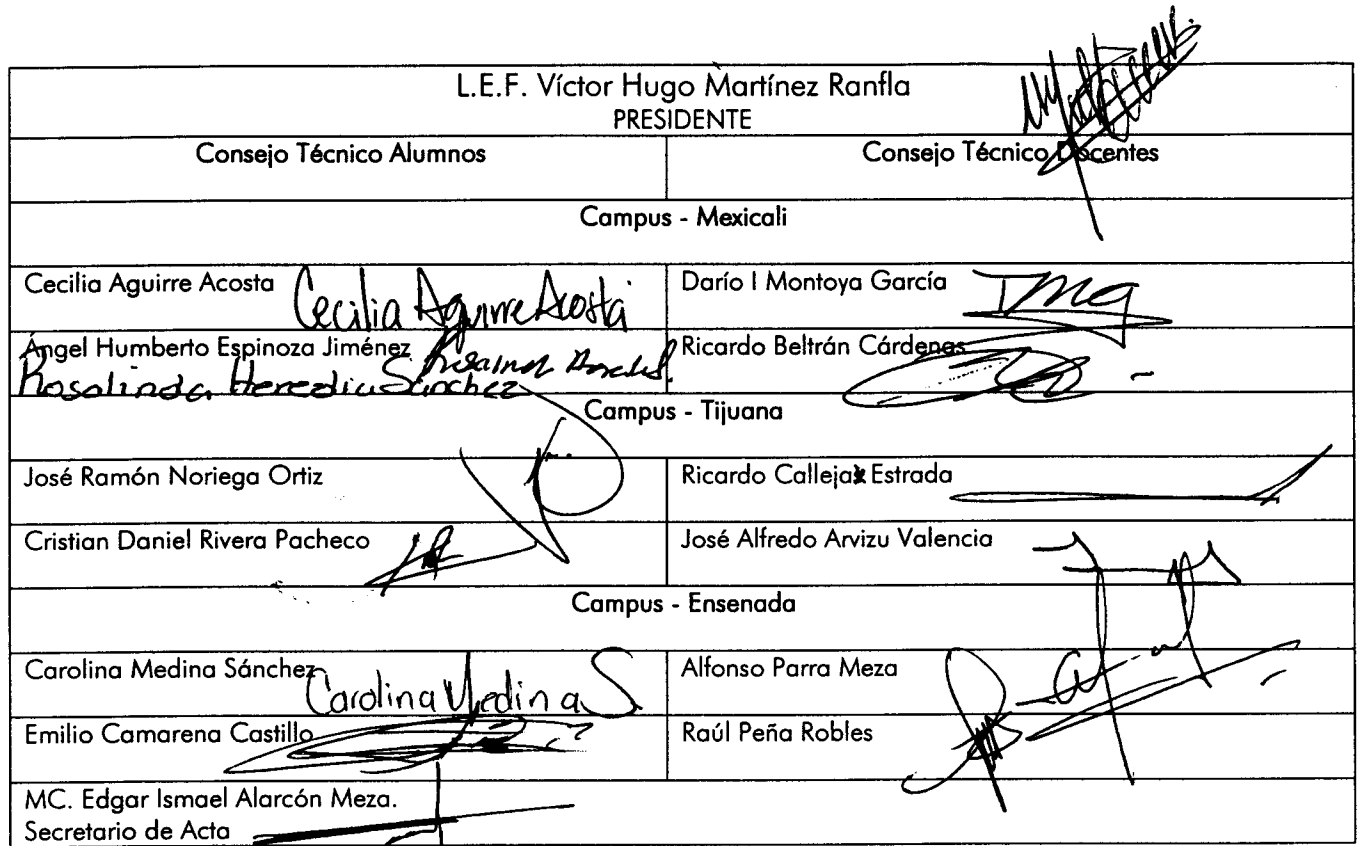 L.E.F. Víctor Hugo Martínez Ranfla
PRESIDENTE
Consejo Técnico Alumnos Consejo Técnico Docentes
Campus - Mexicali
Cecilia Aguirre Acosta Cecilia Aguirre Acosta Darío I Montoya García
Ángel Humberto Espinoza Jiménez Ricardo Beltrán Cárdenas
Rosalinda Heredia Sánchez
Campus - Tijuana
José Ramón Noriega Ortiz Ricardo Callejas Estrada
Cristian Daniel Rivera Pacheco José Alfredo Arvizu Valencia
Campus - Ensenada
Carolina Medina Sánchez Carolina Medina S. Alfonso Parra Meza
Emilio Camarena Castillo Raúl Peña Robles
MC. Edgar Ismael Alarcón Meza.
Secretario de Acta